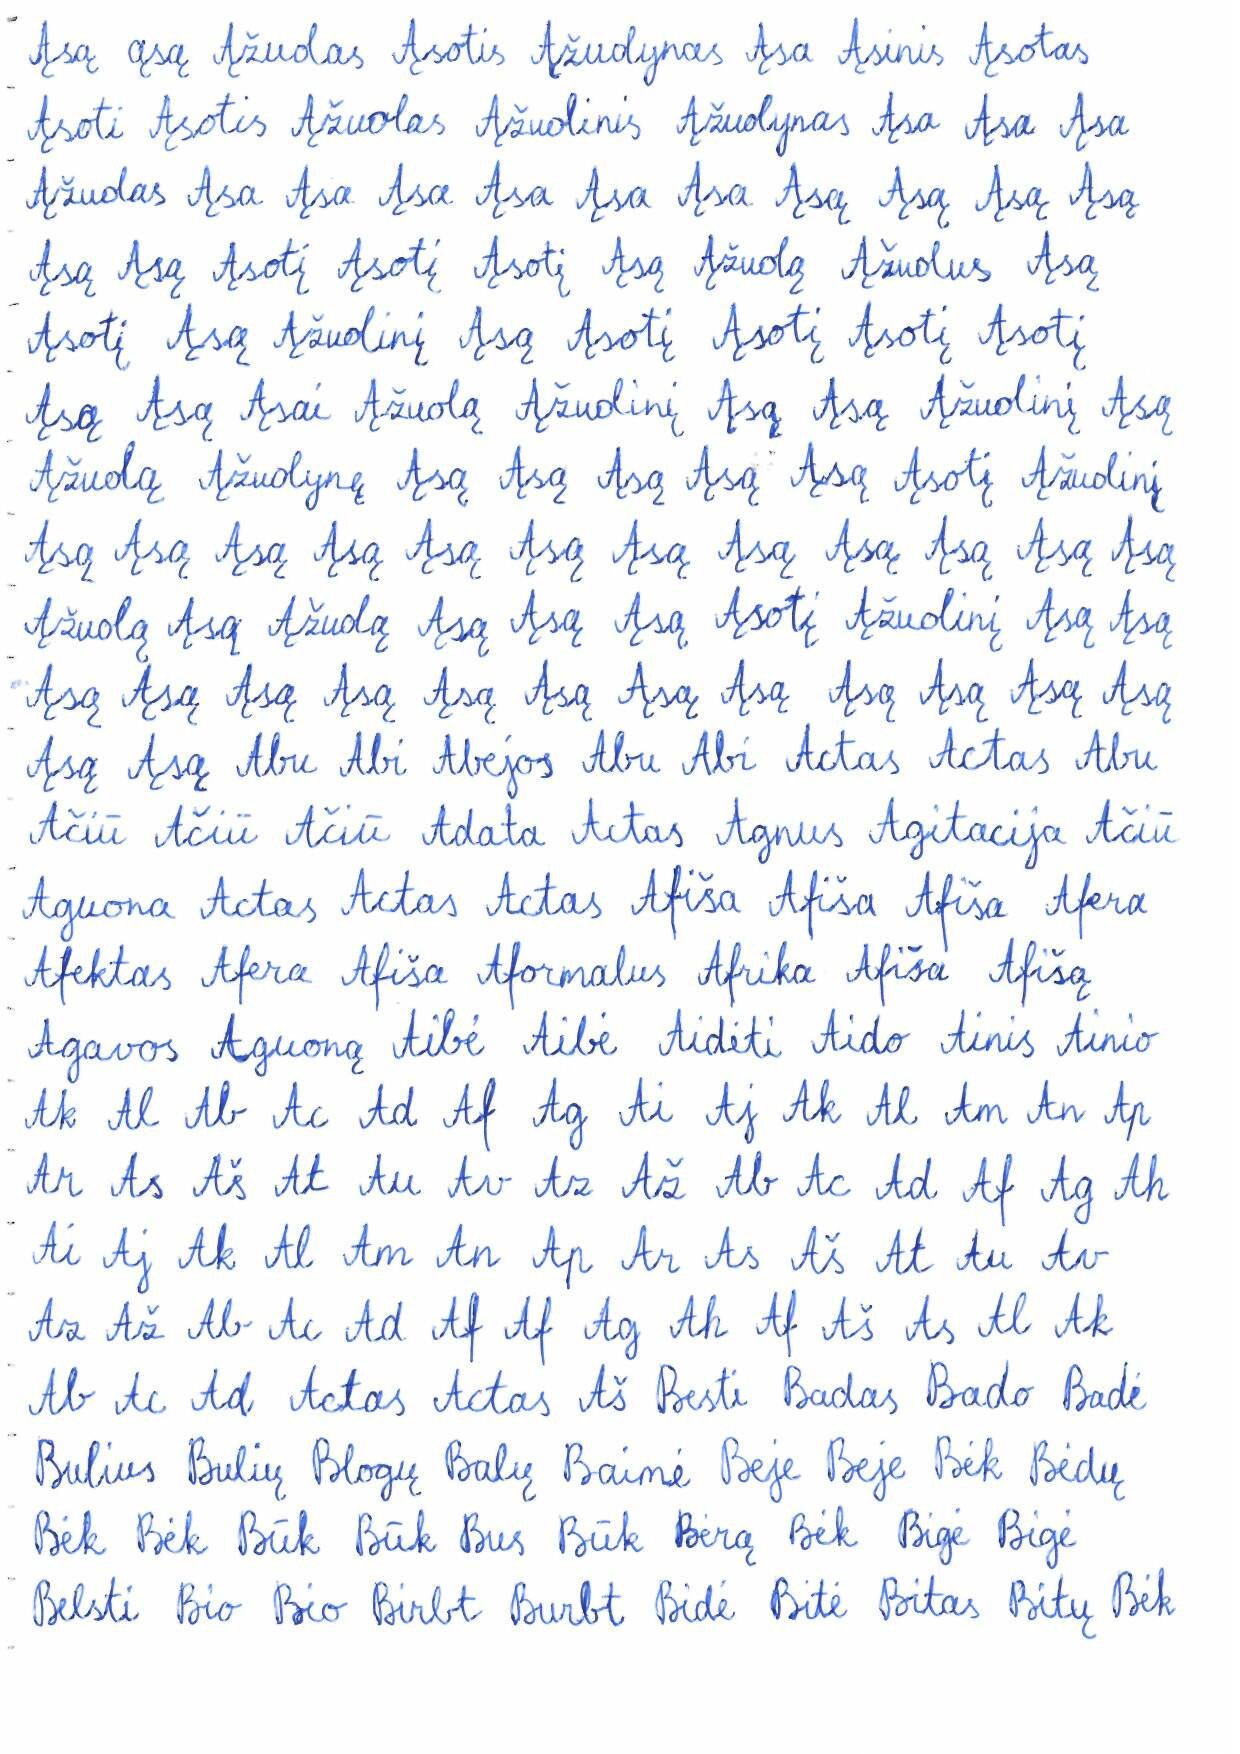 Ąsą ąsą Ąžuolas Ąsotis Ąžuolynas Ąsa Ąsinis Ąsotas
Ąsoti Ąsotis Ąžuolas Ąžuolinis Ąžuolynas Ąsa Ąsa Ąsa
Ąžuolas Ąsa Ąsa Ąsa Ąsa Ąsa Ąsa Ąsą Ąsą Ąsą Ąsą
Ąsą Ąsą Ąsotį Ąsotį Ąsotį Ąsą Ąžuolą Ąžuolus Ąsą
Ąsotį Ąsą Ąžuolinį Ąsą Ąsotį Ąsotį Ąsotį Ąsotį
Ąsą Ąsą Ąsai Ąžuolą Ąžuolinį Ąsą Ąsą Ąžuolinį Ąsą
Ąžuolą Ąžuolyną Ąsą Ąsą Ąsą Ąsą Ąsą Ąsotį Ąžuolinį
Ąsą Ąsą Ąsą Ąsą Ąsą Ąsą Ąsą Ąsą Ąsą Ąsą Ąsą Ąsą
Ąžuolą Ąsą Ąžuolą Ąsą Ąsą Ąsą Ąsotį Ąžuolinį Ąsą Ąsą
Ąsą Ąsą Ąsą Ąsą Ąsą Ąsą Ąsą Ąsą Ąsą Ąsą Ąsą Ąsą
Ąsą Ąsą Abu Abi Abejos Abu Abi Actas Actas Abu
Ačiū Ačiū Ačiū Adata Actas Agnus Agitacija Ačiū
Aguona Actas Actas Actas Afiša Afiša Afiša Afera
Afektas Afera Afiša Aformalus Afrika Afiša Afišą
Agavos Aguoną Aibė Aibė Aidėti Aido Ainis Ainio
Ak Al Ab Ac Ad Af Ag Ai Aj Ak Al Am An Ap
Ar As Aš At Au Av Az Až Ab Ac Ad Af Ag Ah
Ai Aj Ak Al Am An Ap Ar As Aš At Au Av
Az Až Ab Ac Ad Af Af Ag Ah Af Aš As Al Ak
Ab Ac Ad Actas Actas Aš Besti Badas Bado Badė
Bulius Bulių Blogų Balų Baimė Beje Beje Bėk Bėdų
Bėk Bėk Būk Būk Bus Būk Bėrą Bėk Bigė Bigė
Belsti Bio Bio Birbt Burbt Bidė Bitė Bitas Bitų Bėk